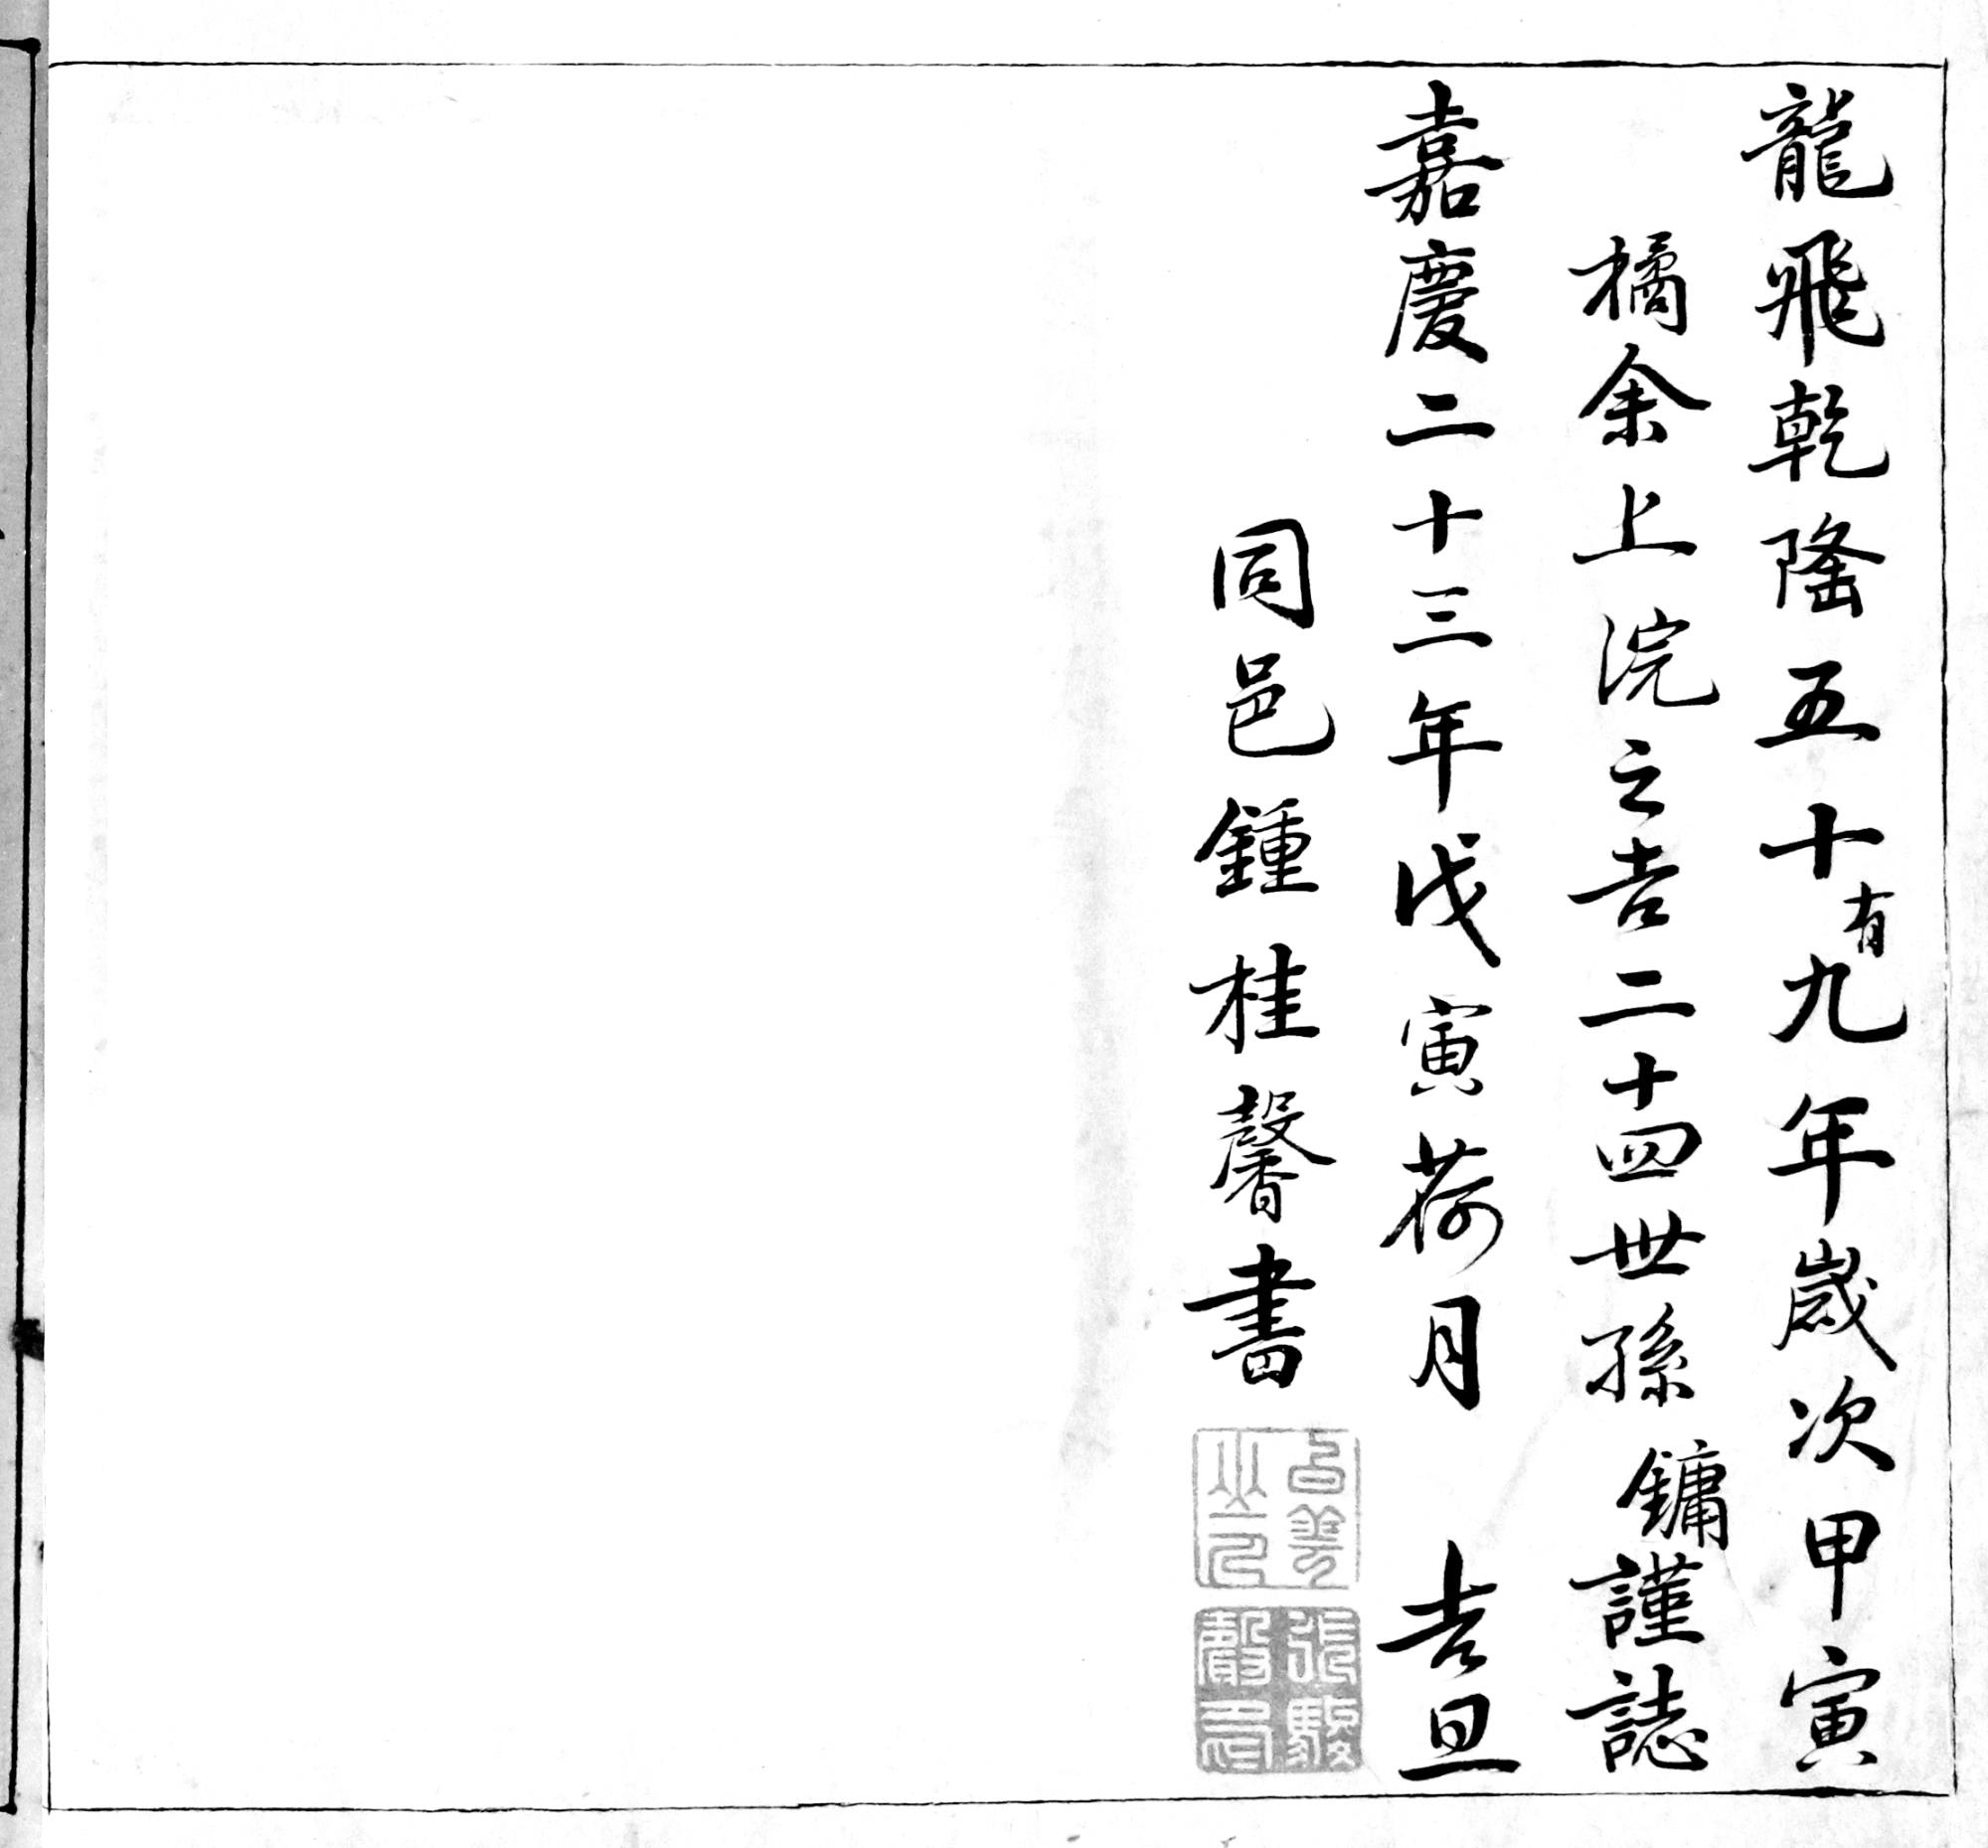 龍飛乾隆五十有九年歲次甲寅
橘余上浣之吉二十四世孫鏞謹誌
嘉慶二十三年戊寅荷月 吉旦
同邑鍾桂馨書